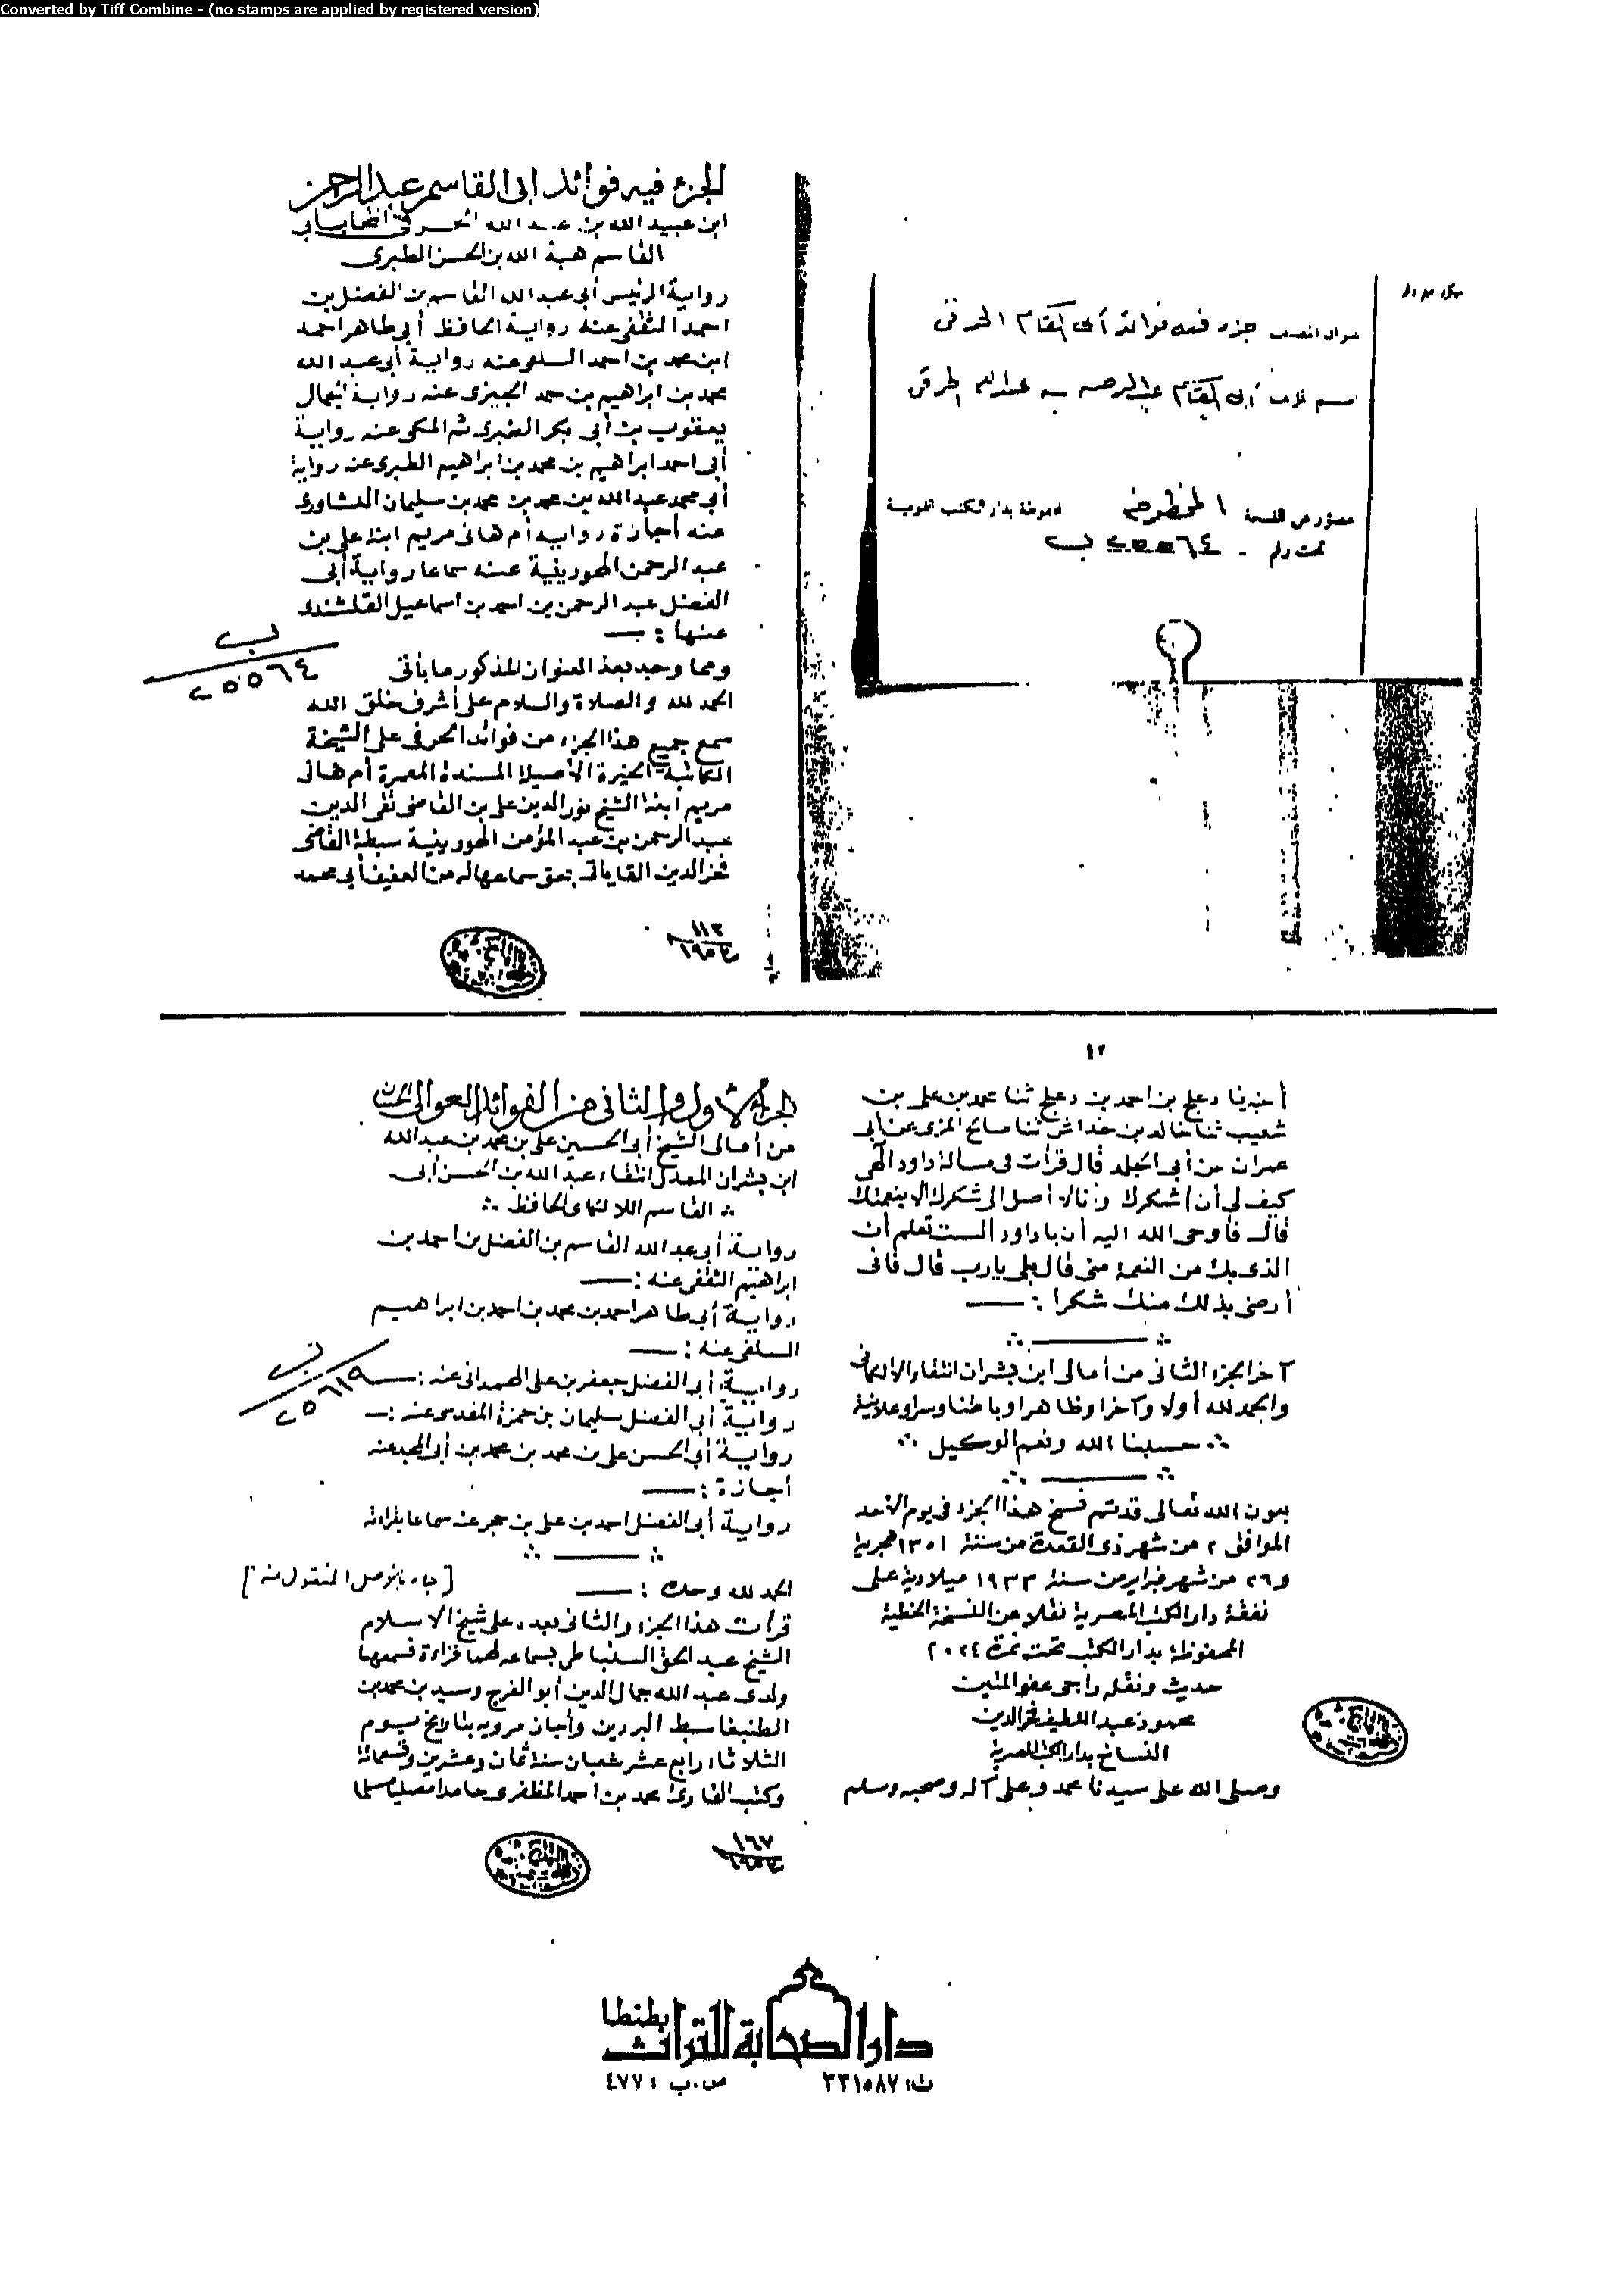 Converted by Tiff Combine - (no stamps are applied by registered version)
جزء فيه فوائد أبى القاسم الحرفى
أبى القاسم عبد الرحمن بن عبد الله الحرفى
مصور من النسخة المخطوطة المحفوظة بدار الكتب المصرية
تحت رقم ٢٥٥٦٤ ب
الجزء فيه فوائد ابى القاسم عبد الرحمن
ابن عبيد الله بن عبد الله الحرفى انتخاب أبى
القاسم هبة الله بن الحسن الطبرى
رواية الرئيس أبى عبد الله القاسم بن الفضل بن
احمد الثقفى عنه رواية الحافظ أبى طاهر احمد
ابن محمد بن احمد السلفى عنه رواية أبى عبد الله
محمد بن ابراهيم بن حمد الجيزى عنه رواية الجمال
يعقوب بن أبى بكر الطبرى ثم المكى عنه رواية
أبى احمد ابراهيم بن محمد بن ابراهيم الطبرى عنه رواية
أبى محمد عبد الله بن محمد بن محمد بن سليمان النشاورى
عنه أجازة رواية أم هانى مريم ابنة على بن
عبد الرحمن الهورينية عنه سماعا رواية أبى
الفضل عبد الرحمن بن احمد بن اسماعيل القلقشندى
عنها : —
ب
٢٥٥٦٤
ومما وجد بهذا العنوان المذكور ما يأتى
الحمد لله والصلاة والسلام على أشرف خلق الله
سمع جميع هذا الجزء من فوائد الحرفى على الشيخة
الكاتبة الخيرة الأصيلة المسندة المعمرة أم هانى
مريم ابنة الشيخ نور الدين على بن القاضى تقى الدين
عبد الرحمن بن عبد المؤمن الهورينية سبطة القاضى
فخر الدين القاياتى بحق سماعها له من العفيف أبى محمد
١١٢
١٩٥٣
٤٢
أخبرنا دعلج بن احمد بن دعلج ثنا محمد بن على بن
شعيب ثنا خالد بن خداش ثنا صالح المزى عن أبى
عمران عن أبى الجلد قال قرأت فى مسالة داود الهى
كيف لى أن أشكرك وأنا لا أصل الى شكرك الا بنعمتك
قال فأوحى الله اليه أن يا داود الست تعلم أن
الذى بك من النعمة منى قال بلى يارب قال فانى
أرضى بذلك منك شكرا : —
آخر الجزء الثانى من أمالى ابن بشران انتقاء الالكائى
والحمد لله أولا وآخرا وظاهرا وباطنا وسرا وعلانية
حسبنا الله ونعم الوكيل
بعون الله تعالى قد تم نسخ هذا الجزء فى يوم الأحد
الموافق ٢ من شهر ذى القعدة من سنة ١٣٥١ هجرية
و٢٦ من شهر فبراير من سنة ١٩٣٣ ميلادية على
نفقة دار الكتب المصرية نقلا عن النسخة الخطية
المحفوظة بدار الكتب تحت نمرة ٢٠٢٤
حديث ونقله راجى عفو المتين
محمود عبد اللطيف فخر الدين
النساخ بدار الكتب المصرية
وصلى الله على سيدنا محمد وعلى آله وصحبه وسلم
الجزء الأول والثانى من الفوائد العوالى الحسان
من أمالى الشيخ أبى الحسين على بن محمد بن عبد الله
ابن بشران المعدل انتقاء عبد الله بن الحسن أبى
القاسم اللالكائى الحافظ
رواية أبى عبد الله القاسم بن الفضل بن احمد بن
ابراهيم الثقفى عنه : —
رواية أبى طاهر احمد بن محمد بن احمد بن ابراهيم
السلفى عنه : —
رواية أبى الفضل جعفر بن على الهمدانى عنه : —
رواية أبى الفضل سليمان بن حمزة المقدسى عنه : —
رواية أبى الحسن على بن محمد بن محمد بن أبى المجد عنه
أجازة : —
رواية أبى الفضل احمد بن على بن حجر عنه سماعا بقراءته
ب
٢٥٦١٩
الحمد لله وحده : — [جاء بالأصل المنقول منه]
قرأت هذا الجزء والثانى بعده على شيخ الاسلام
الشيخ عبد الحق السنباطى بسماعه لهما قراءة فسمعها
ولدى عبد الله جمال الدين أبو الفرج وسيد بن محمد بن
الطنبغا سبط البردين وأجاز مرويه بتاريخ يوم
الثلاثاء رابع عشر شعبان سنة ثمان وعشرين وتسمائة
وكتب القارئ محمد بن أحمد المظفرى حامدا مصليا مسلما
١٦٧
١٩٥٣
دار الصحابة للتراث بطنطا
ت: ٣٣١٥٨٧ ص.ب : ٤٧٧